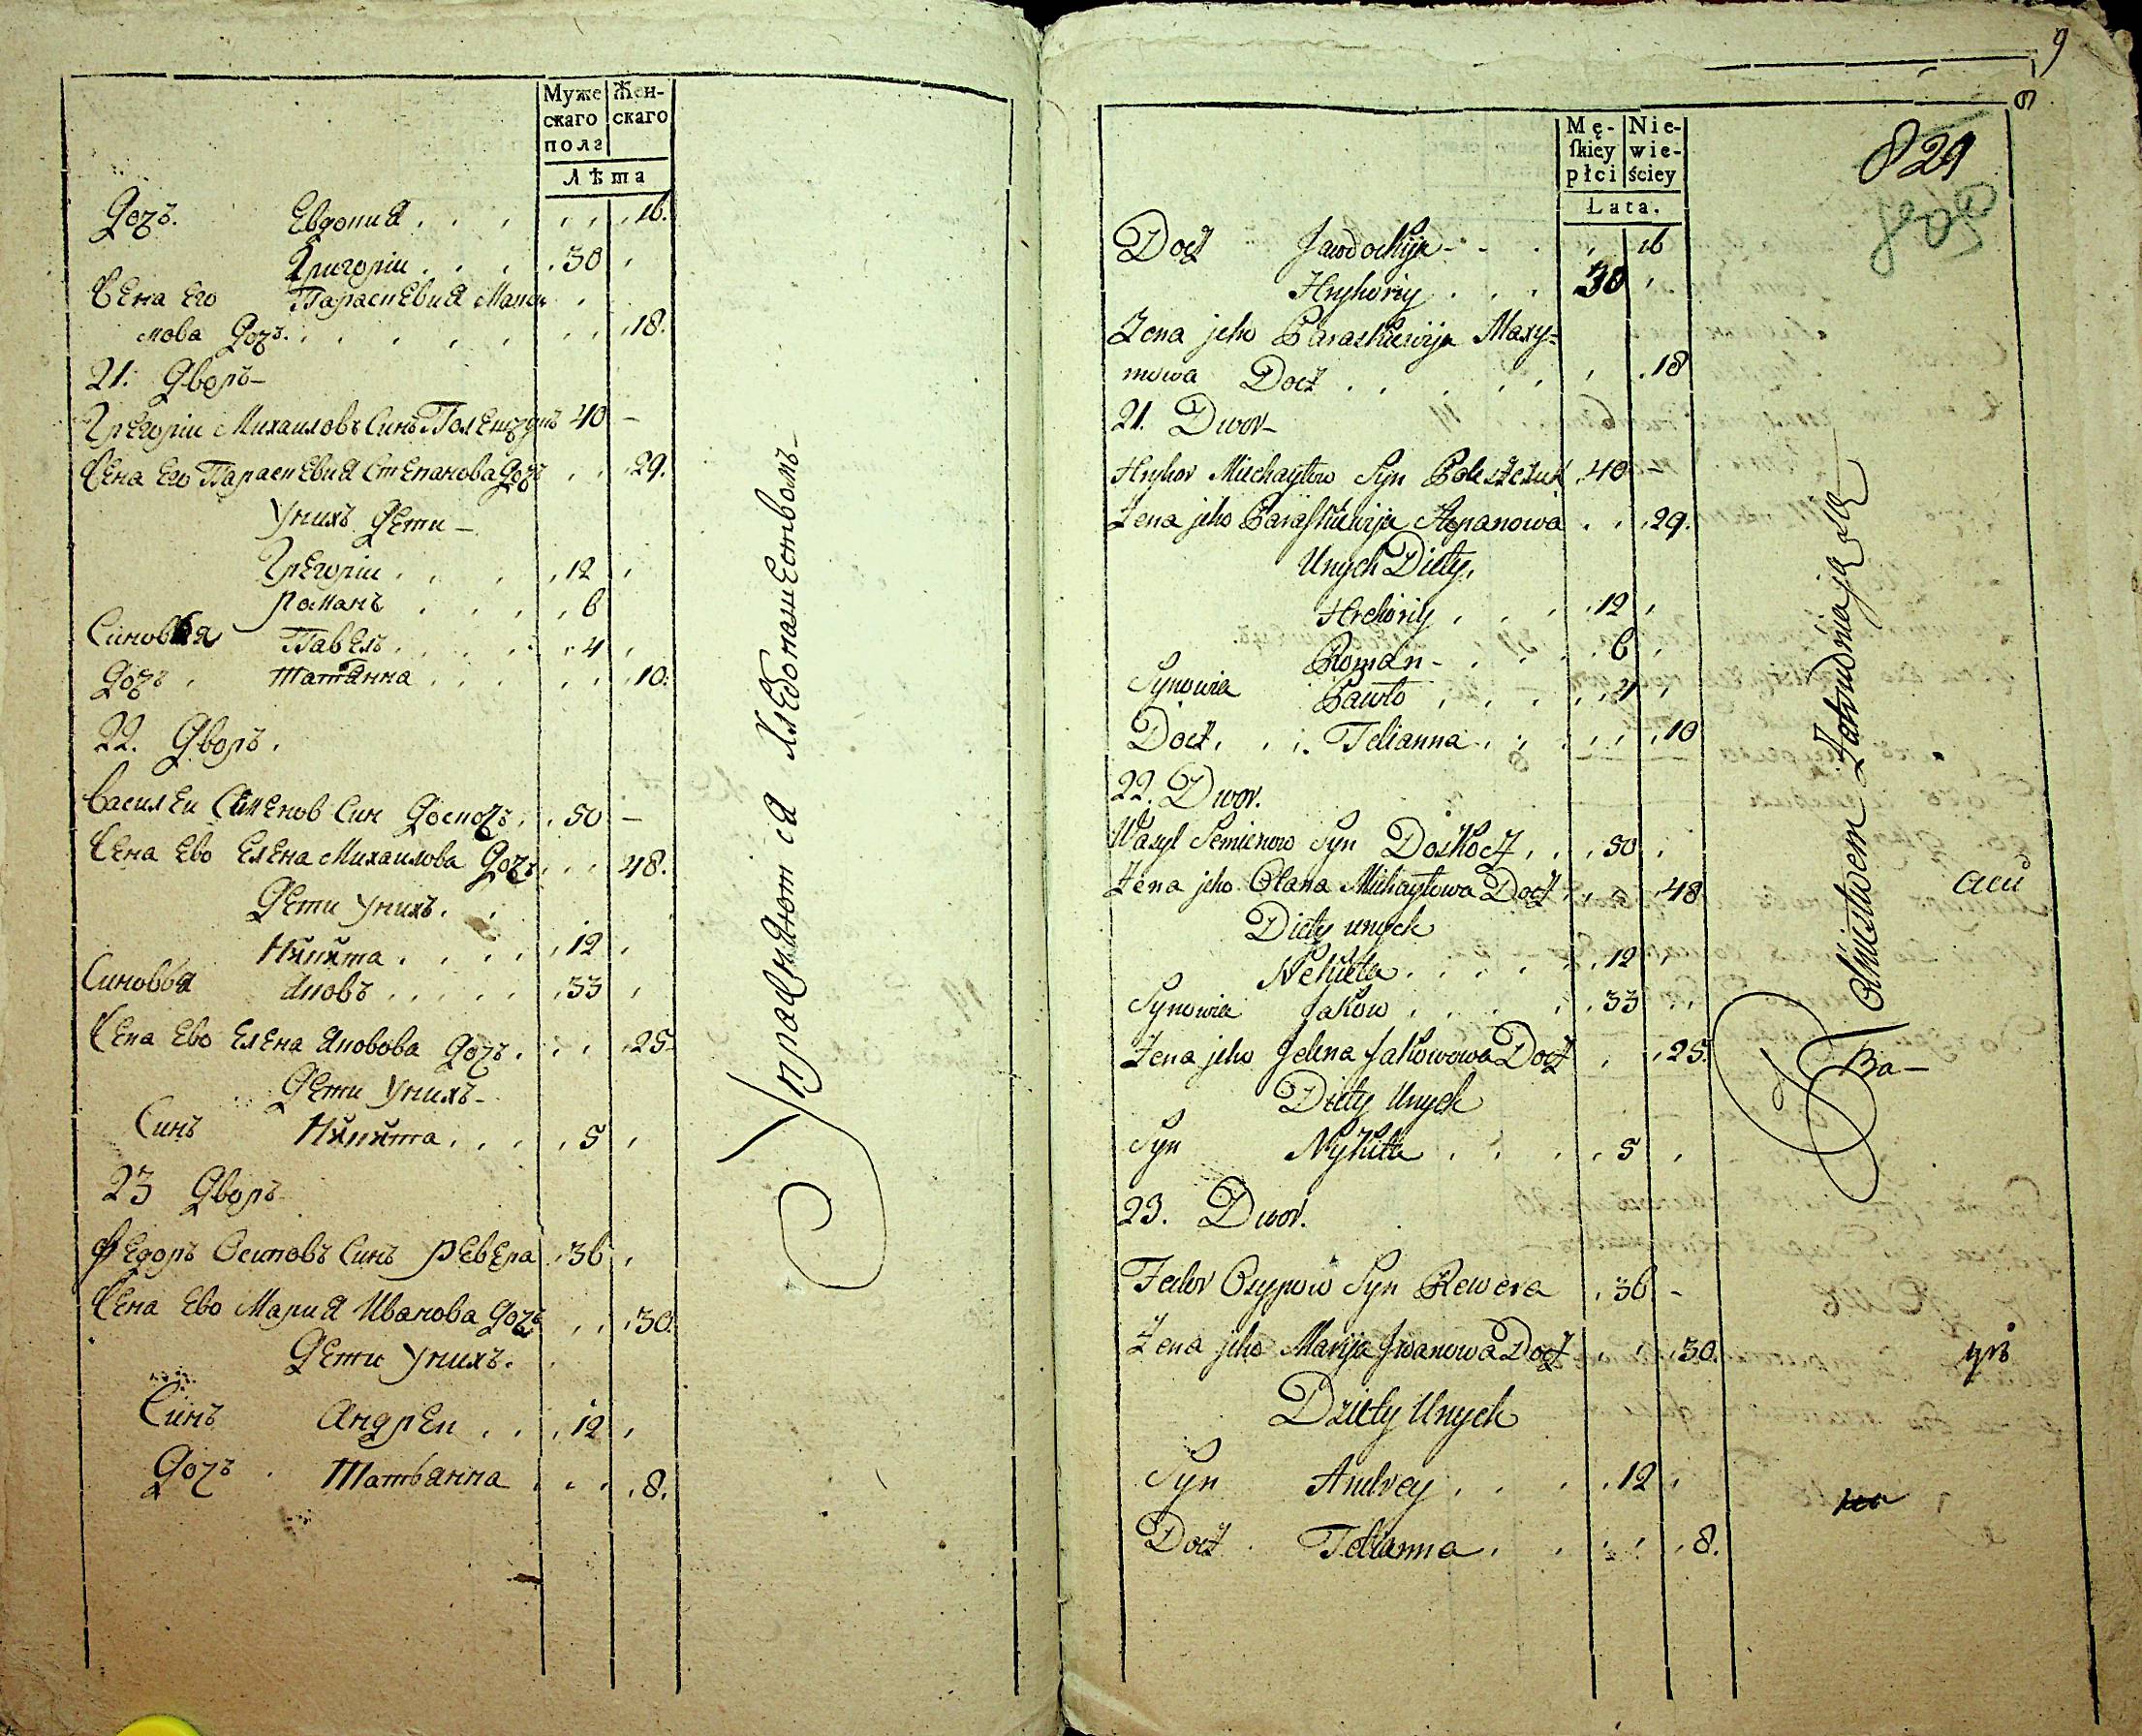 Муже
скаго
пола
Жен-
скаго
Лѣта
Дочъ. Евдокия . . . . . . 16.
Григорiи . . . . 30 .
Жена Его Параскевия Макси
мова Дочъ . . . . . . . 18.
21. Дворъ-
Грегорiи Михаиловъ Синъ Полещукъ 40 -
Жена Его Параскевия Степанова Дочъ . . 29.
Унихъ Дети-
Грегорiи . . . . 12 .
Романъ . . . . 6
Синовья Павелъ . . . . 4 .
Дочъ . Татянна . . . . . . 10.
22. Дворъ.
Василеи Сименов Син Доскочъ . . 50 -
Жена Ево Елена Михаилова Дочъ . . 48.
Дети Унихъ . .
Никита . . . . 12 .
Синовья Яковъ . . . . . 33 .
Жена Ево Елена Яковова Дочъ . . . 25.
Дети Унихъ-
Синъ Никита . . . . 5 .
23 Дворъ
Федоръ Осиповъ Синъ Ревера . 36 .
Жена Ево Мария Иванова Дочъ . . . 30.
Дети Унихъ.
Синъ Андреи . . . 12 .
Дочъ . Татьянна . . . . 8.
Упражняются Хлебопашествомъ-
9
Mę-
ſkiey
płci
Nie-
wie-
ściey
Lata.
821
Docz Jawdochija - - . . 16
Hryhoriy . . . 30 .
Żena jeho Paraskiewija Maxy=
mowa Docz . . . . . . .18
21. Dwor-
Hryhor Michayłow Syn Poleszczuk .40 -
Żena jeho Paraskiewija Stepanowa . . .29.
Unych Diety.
Hrehoriy . . . .12 .
Roman - . . . .6 .
Synowia Pawło . . . . .4 .
Docz. . . Tetianna . . . . . .10
22. Dwor.
Wasyl Semienow Syn Doskocz . . .50 .
Żena jeho Olana Michayłowa Docz . . .48
Diety unych
Nekieta . . . . . .12 .
Synowia Jakow . . . . .33 . .
Żena jeho Jelena Jakowowa Docz . . .25.
Diety Unych
Syn Nykita . . . . 5 .
23. Dwor.
Fedor Osypow Syn Rewera . 36 -
Żena jeho Maryja Jwanowa Docz . . .30.
Dziety Unych
Syn Andrey . . . .12 .
Docz . Tetianna . . . . . 8.
Rolnictwem Zatrudniają się